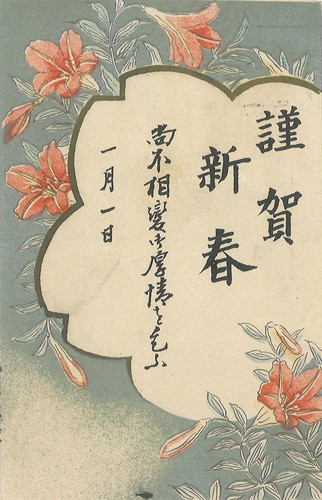 謹賀
新春
尚不相變御厚情を乞ふ
一月一日